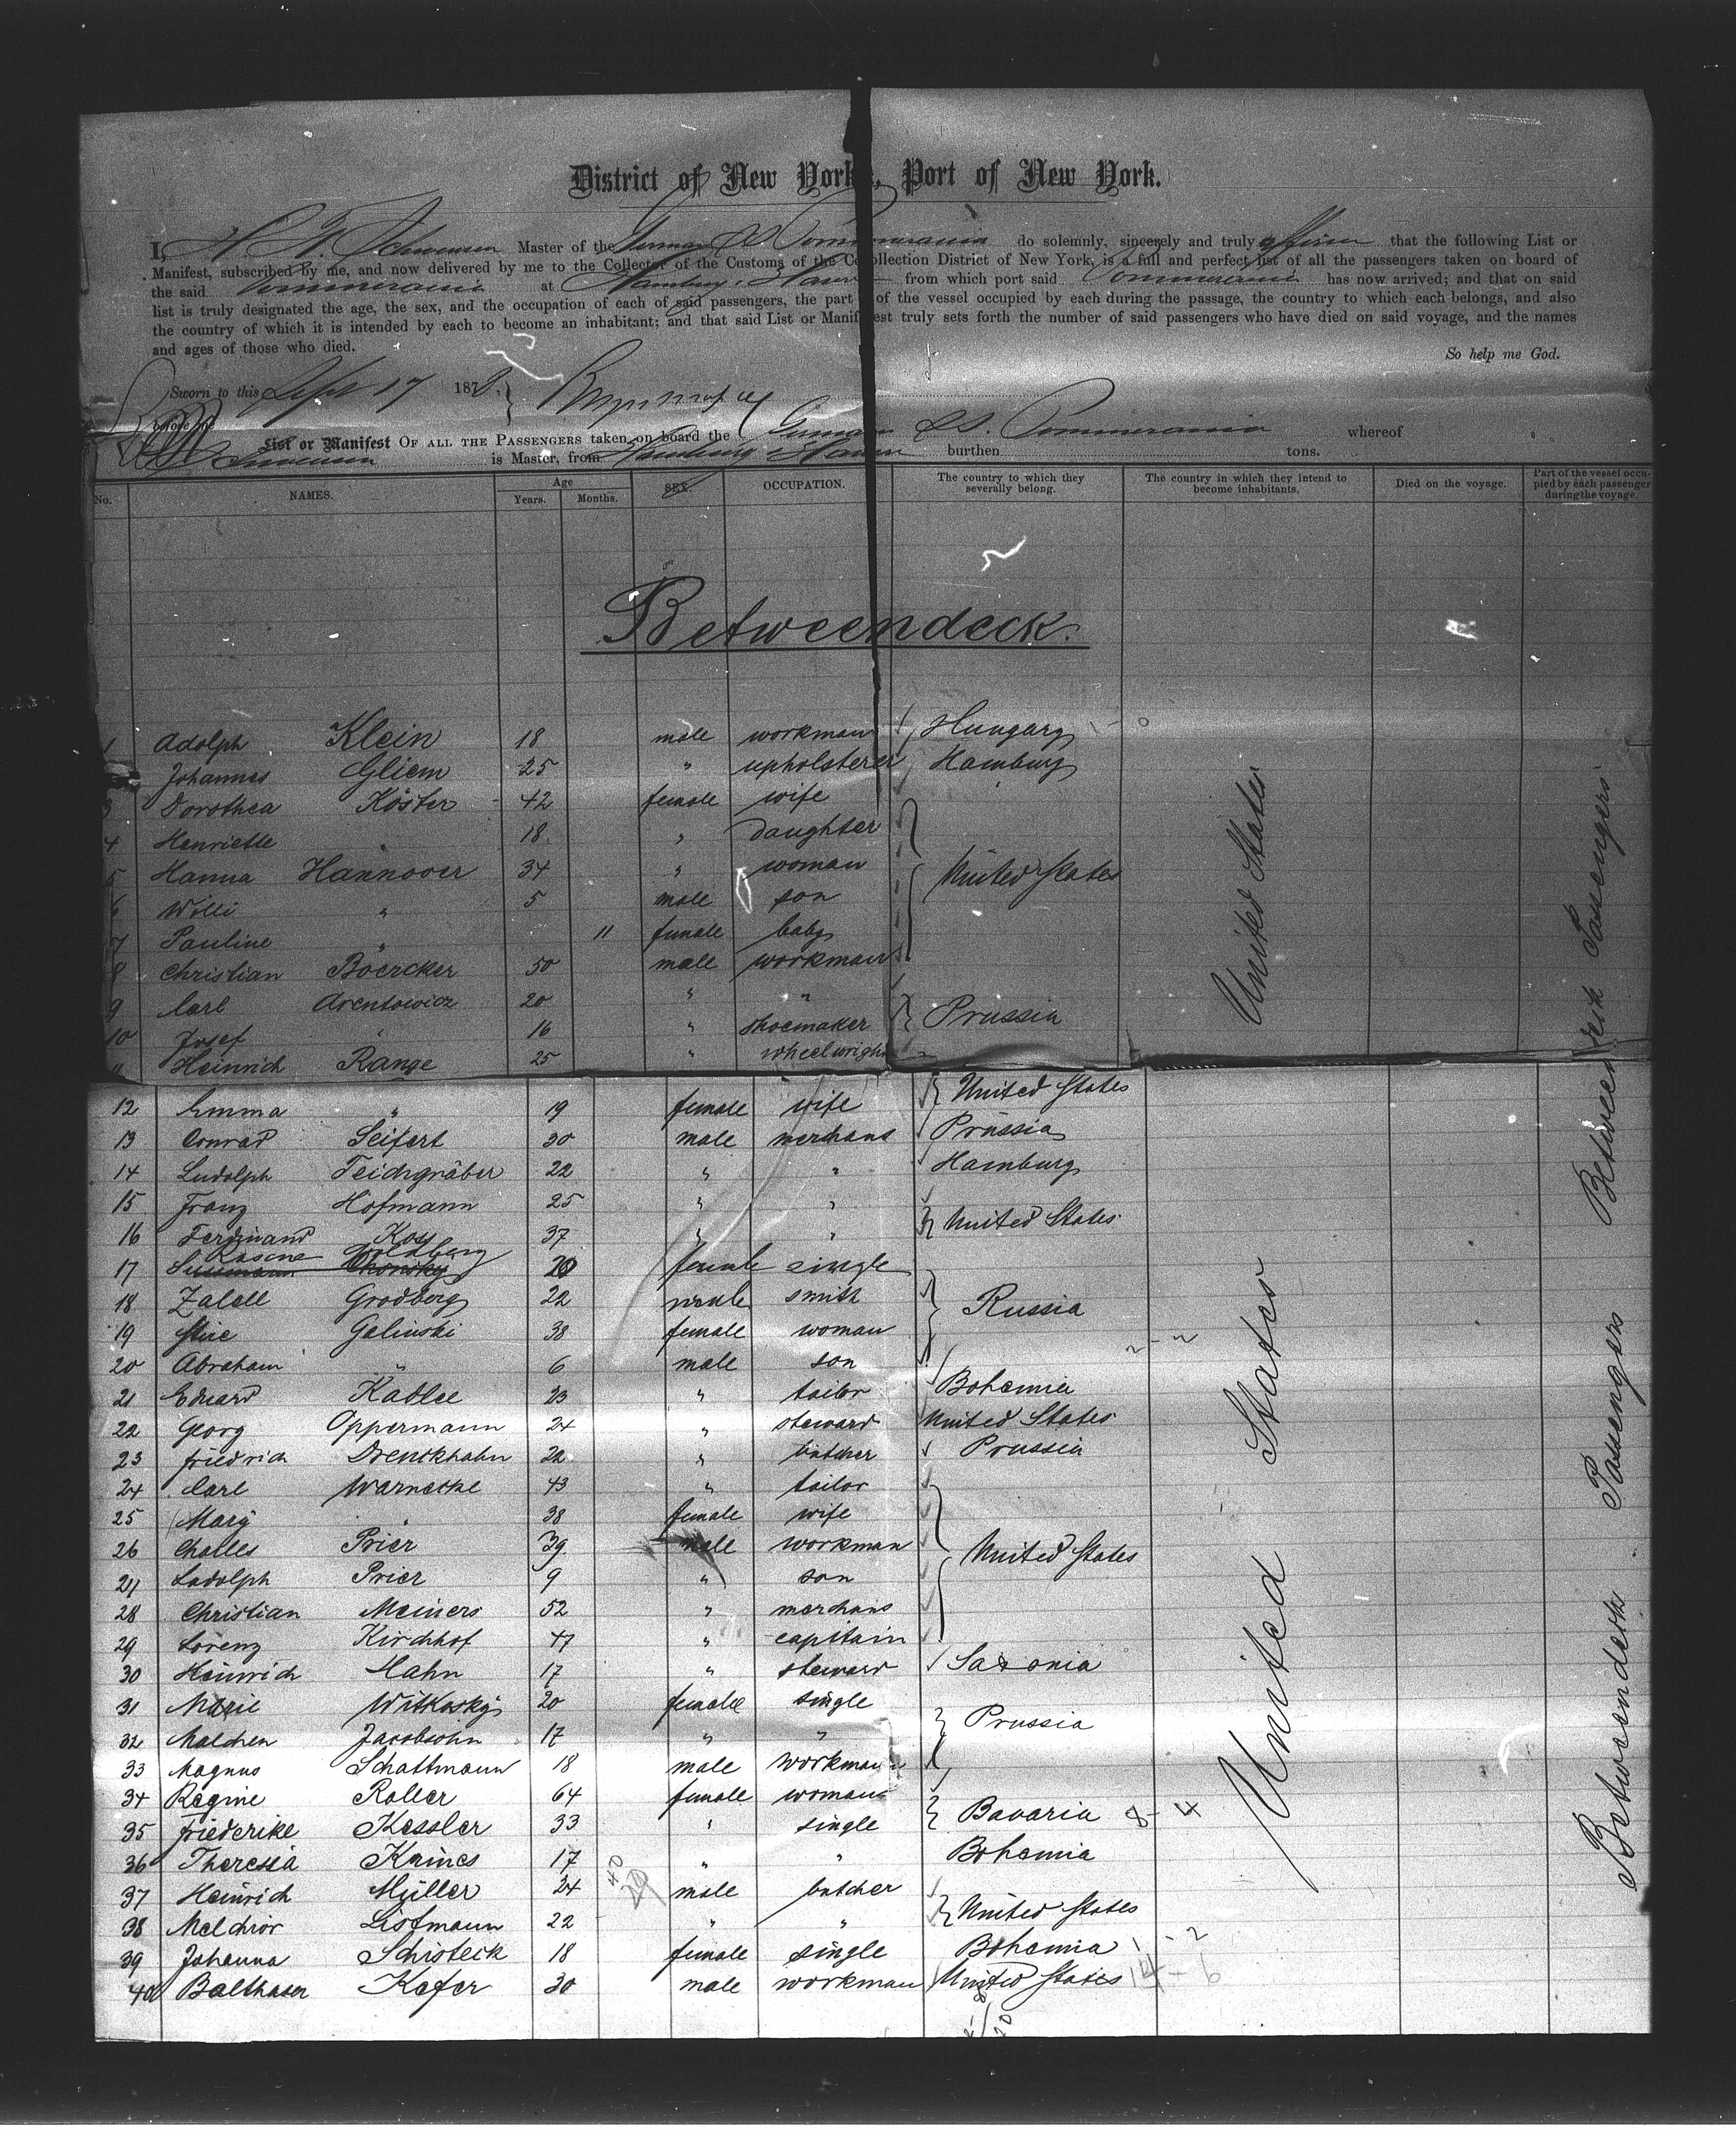 District of New York, Port of New York.
I, H. F. Schwensen Master of the German SS Pommerania do solemnly, sincerely and truly affirm that the following List or
Manifest, subscribed by me, and now delivered by me to the Collector of the Customs of the Collection District of New York, is a full and perfect list of all the passengers taken on board of
the said Pommerania at Hamburg, Havre from which port said Pommerania has now arrived; and that on said
list is truly designated the age, the sex, and the occupation of each of said passengers, the part of the vessel occupied by each during the passage, the country to which each belongs, and also
the country of which it is intended by each to become an inhabitant; and that said List or Manifest truly sets forth the number of said passengers who have died on said voyage, and the names
and ages of those who died.
So help me God.
Sworn to this Sept 17 1878.
before me
List or Manifest OF ALL THE PASSENGERS taken on board the German SS. Pommerania whereof
is Master, from Hamburg & Havre burthen tons.
No. NAMES. Age Years. Months. SEX. OCCUPATION. The country to which they severally belong. The country in which they intend to become inhabitants. Died on the voyage. Part of the vessel occupied by each passenger during the voyage.
Betweendeck.
1 Adolph Klein 18 male workman Hungary
Johannes Gliem 25 " upholsterer Hamburg
3 Dorothea Köster 42 female wife
4 Henriette " 18 " daughter
5 Hanna Hannover 34 " woman United States
6 Willi " 5 male son
7 Pauline " 11 female baby
8 Christian Boercker 50 male workman
9 Carl Arentowicz 20 " "
10 Josef " 16 " shoemaker Prussia
11 Heinrich Range 25 " wheelwright
12 Emma " 19 female wife United States
13 Conrad Seifert 30 male merchant Prussia
14 Ludolph Teichgräber 22 " " Hamburg
15 Franz Hofmann 25 " "
16 Ferdinand Koss 37 " " United States
17 Goldberg 20 female single
18 Zalell Grodberg 22 male smith Russia
19 Galinski 38 female woman
20 Abraham " 6 male son
21 Eduard Kadlec 23 " tailor Bohemia
22 Georg Oppermann 24 " steward United States
23 Friedrich Drenckhahn 22 " butcher Prussia
24 Carl Warnecke 43 " tailor
25 Mary " 38 female wife
26 Challes Prier 39 male workman United States
27 Ladolph Prier 9 " son
28 Christian Meiners 52 " merchant
29 Lorenz Kirchhof 47 " capitain
30 Heinrich Hahn 17 " steward Saxonia
31 Marie Witkosky 20 female single
32 Malchen Jacobsohn 17 " " Prussia
33 Magnus Schattmann 18 male workman
34 Regine Roller 64 female woman
35 Friederike Kessler 33 " single Bavaria 8 - 4
36 Theresia Kaines 17 " " Bohemia
37 Heinrich Müller 24 male butcher
38 Melchior Listmann 22 " " United States
39 Johanna Schisteck 18 female single Bohemia 1 - 2
40 Balthaser Kefer 30 male workman United States 14 - 6
United States
United States
Betweendeck Passengers
Betweendeck Passengers